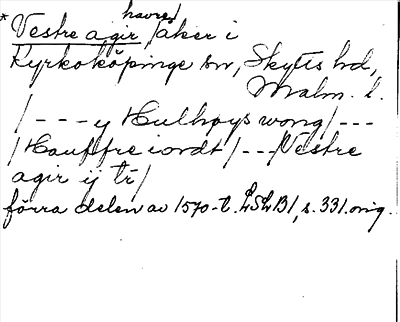 * Vestre agir, /åker i
havre/
Kyrkoköpinge sn, Skytts hd,
Malm. l.
/ - - - y Hulhøys wong / - - -
/ Hauffre iordt / - - - /Vestre
agir ij tr /
förra delen av 1570-t. LSLB1, s. 331. orig.